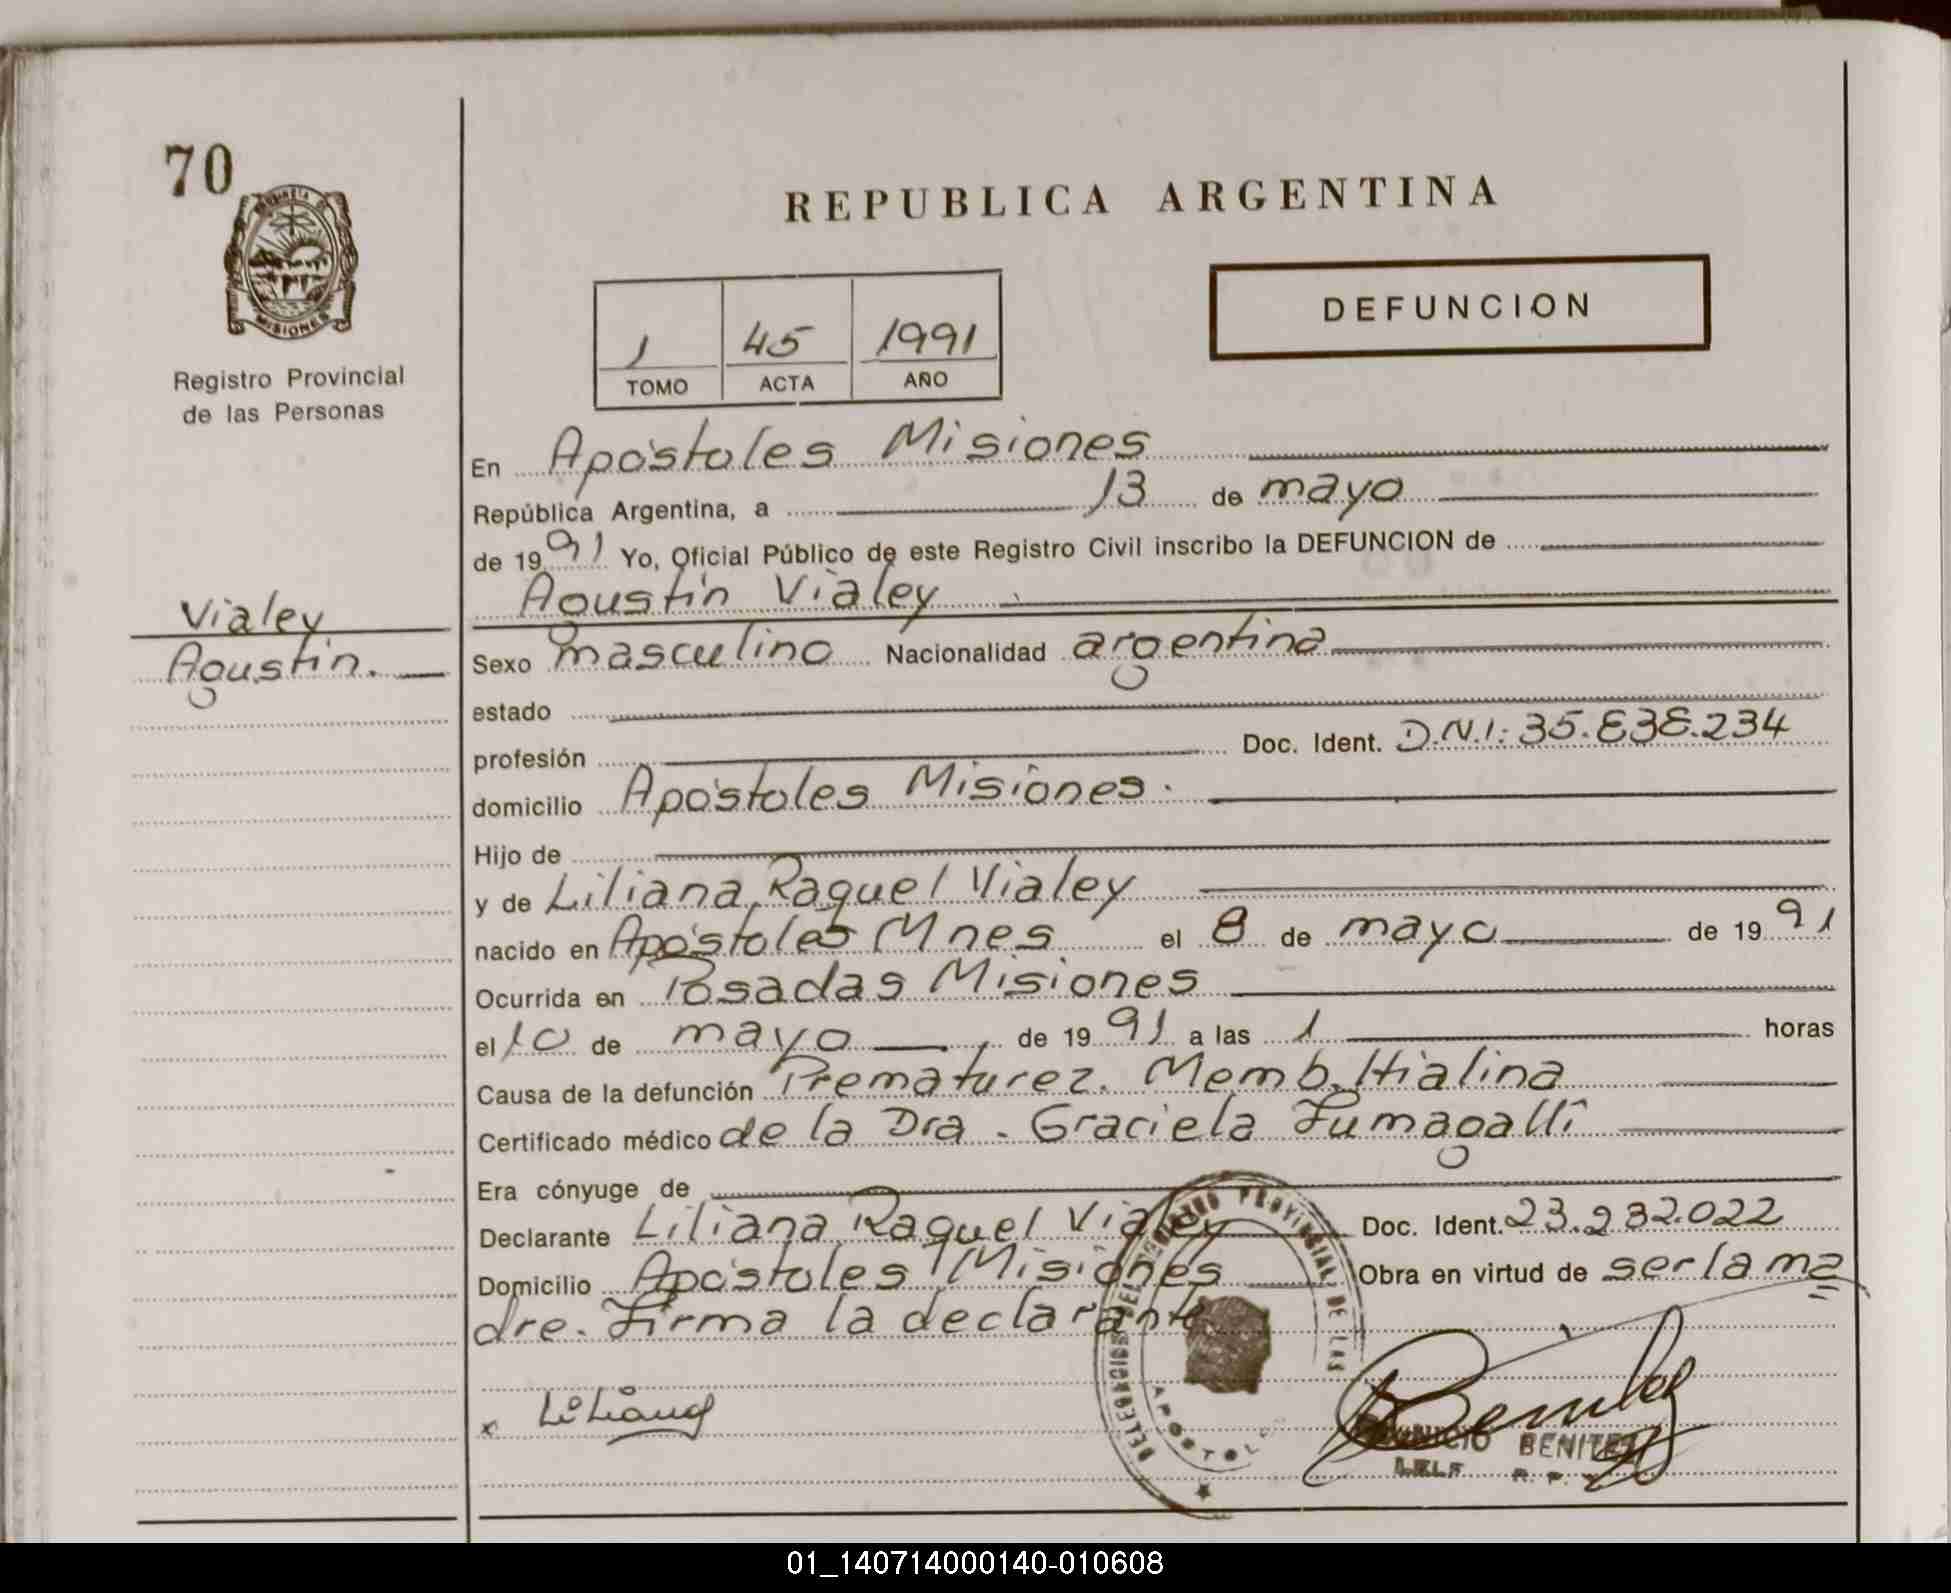 70
PROVINCIA DE
MISIONES
Registro Provincial
de las Personas
REPUBLICA ARGENTINA
DEFUNCION
1 45 1991
TOMO ACTA AÑO
En Apóstoles Misiones
República Argentina, a 13 de mayo
de 1991 Yo, Oficial Público de este Registro Civil inscribo la DEFUNCION de
Agustín Vialey
Vialey
Agustín.
Sexo masculino Nacionalidad argentina
estado
profesión Doc. Ident. D.N.I: 35.838.234
domicilio Apóstoles Misiones.
Hijo de
y de Liliana Raquel Vialey
nacido en Apóstoles Mnes el 8 de mayo de 1991
Ocurrida en Posadas Misiones
el 10 de mayo de 1991 a las 1 horas
Causa de la defunción Prematurez. Memb. Hialina
Certificado médico de la Dra. Graciela Fumagalli
Era cónyuge de
Declarante Liliana Raquel Vialey Doc. Ident. 23.232.022
Domicilio Apóstoles Misiones Obra en virtud de ser la ma
dre. Firma la declarante
x Liliana
PROVINCIAL DE LAS
BENITEZ
01_140714000140-010608